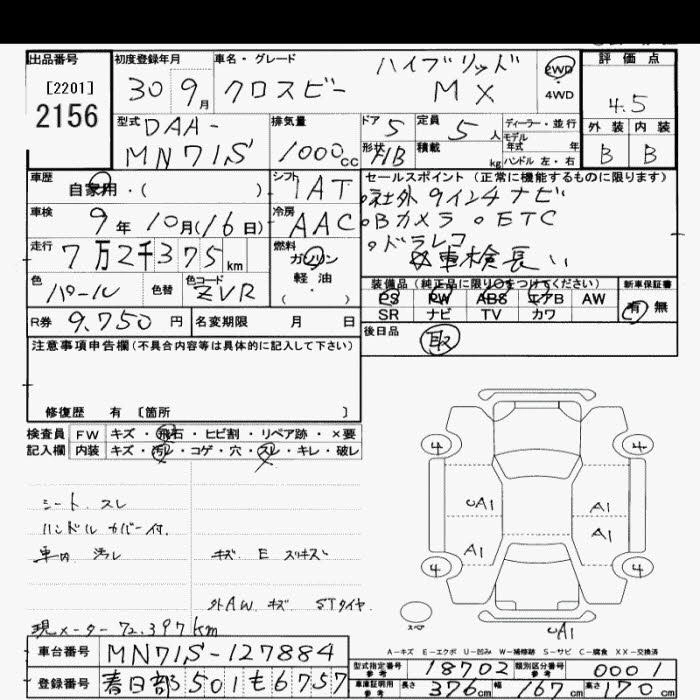 出品番号 初度登録年月 車名・グレード ハイブリッド 2WD 評価点
[2201] 30 9月 クロスビー MX 4WD 4.5
2156 型式 DAA- 排気量 ドア 5 定員 5人 ディーラー・並行 外装 内装
モデル
年式 年
MN71S 1000cc 形状 HB 積載 kg ハンドル 左・右 B B
車歴 自家用・( ) シフト IAT セールスポイント (正常に機能するものに限ります)
社外9インチナビ
車検 9年10月(16日) 冷房 AAC Bカメラ ETC
ドラレコ
走行 7万2千375km 燃料 ガソリン 車検長い
軽油
・( )
色 パール 色替 色コード ZVR 装備品(純正品に限り○をつけてください) 新車保証書
PS PW ABS エアB AW 有 無
SR ナビ TV カワ
R券 9.750円 名変期限 月 日 後日品 取
注意事項申告欄(不具合内容等は具体的に記入して下さい)
修復歴 有 [箇所 ]
検査員 FW キズ・飛石・ヒビ割・リペア跡・×要
記入欄 内装 キズ・汚レ・コゲ・穴・スレ・キレ・破レ
シート スレ
ハンドル カバー付.
車内 汚レ キズ E スリキズ
外AW キズ STタイヤ.
現メーター 72.397km
4 4
UA1 A1
A1 A1
4 4
スペア
UA1
A-キズ E-エクボ U-凹み W-補修跡 S-サビ C-腐食 XX-交換済
車台番号 MN71S-127884 型式指定番号 参考 18702 類別区分番号 参考 0001
登録番号 春日部501も6757 車庫証明用 参考 長さ 376cm 幅 167cm 高さ 170cm